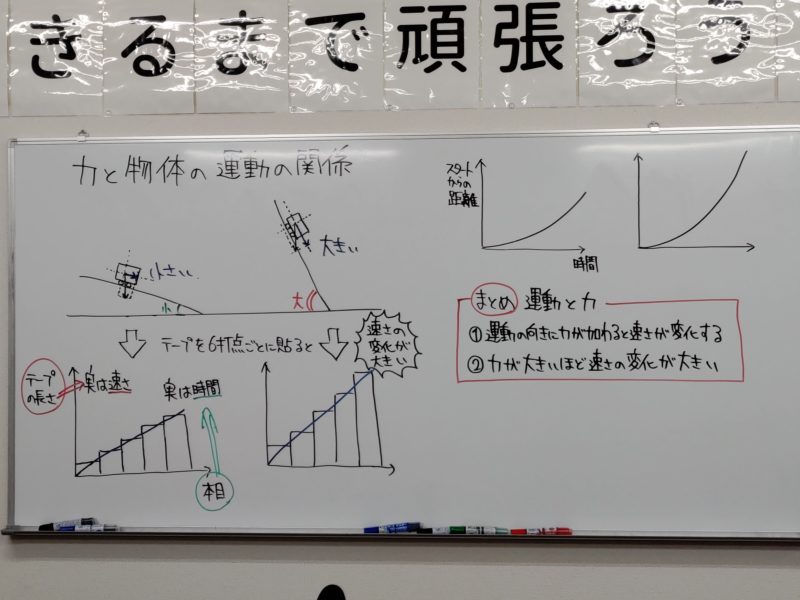 きるまで頑張ろう
力と物体の運動の関係
小さい
小
大きい
大
テープを6打点ごとに貼ると
速さの
変化が
大きい
テープ
の長さ
実は速さ
実は時間
スタート
からの
距離
時間
まとめ 運動と力
①運動の向きに力が加わると速さが変化する
②力が大きいほど速さの変化が大きい